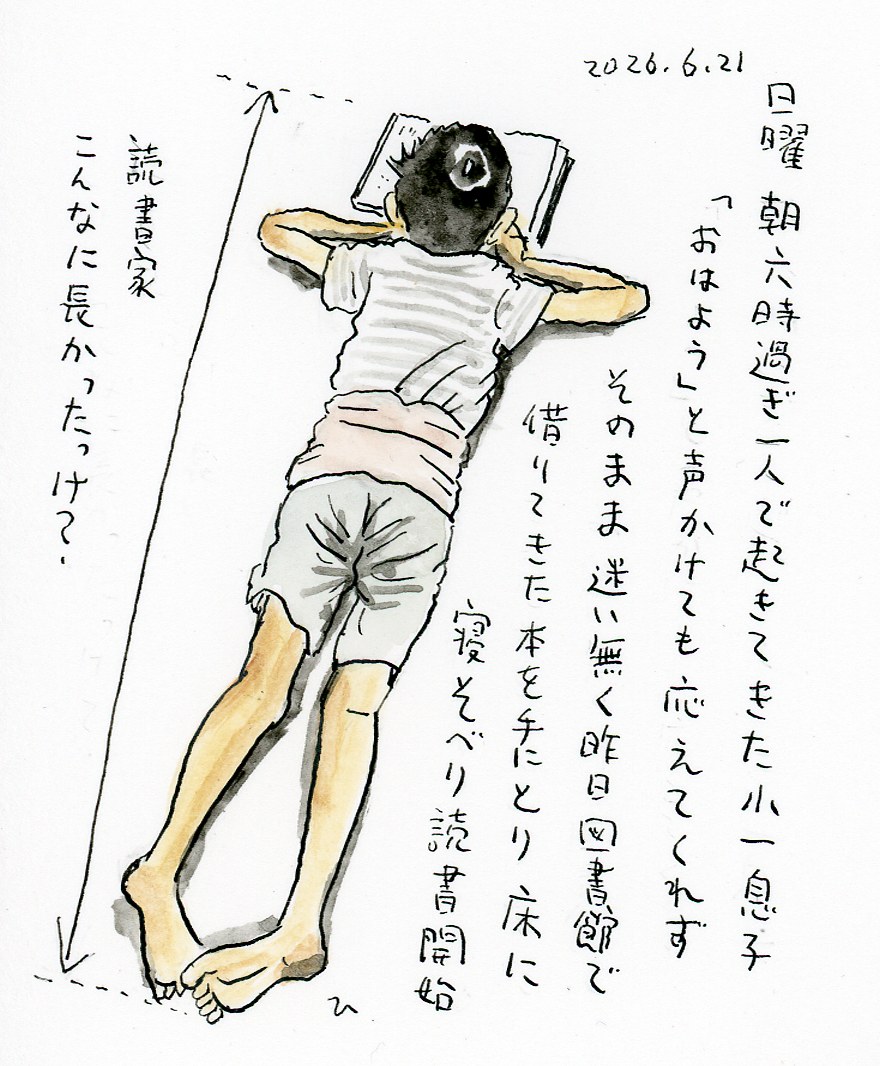 2026.6.21
日曜 朝六時過ぎ一人で起きてきた小一息子
「おはよう」と声かけても応えてくれず
そのまま 迷い無く昨日図書館で
借りてきた本を手にとり 床に
寝そべり読書開始
読書家
こんなに長かったっけ？.
ひ